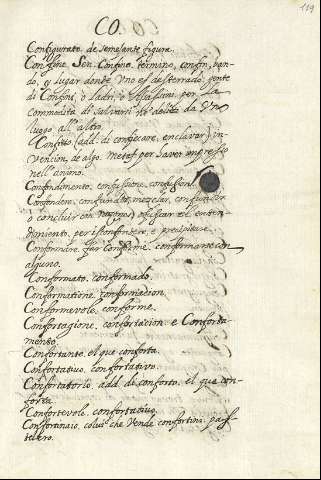 CO.
119
Configurato. de semejante figura.
Confine. Sen. Confino. termino, confin, van-
do, y lugar donde uno es desterrado. gente
di Confini, o ladri, o Assassini per la
commodità di salvarsi del delito da un
luogo all' altro.
Confitto (add. di conficcare, enclavar) in-
vencion, de algo. metef. per haver impresso
nell' animo.
Confondimento, confussione, confusion.
Confondere, confundir, mezclar,
o concluir con razones) ofuscar el enten-
dimiento, per isconfondere e precipitare.
Confondre, far conforme. conformarse con
alguno.
Conformato. conformado.
Conformatione. conformacion.
Conformevole. conforme.
Confortagione. confortacion e Conforta-
mento.
Confortante. el que conforta.
Confortativo. confortativo.
Confortatorio. add. di conforto. el que con-
forta.
Confortevole. confortativo.
Confortinaio. colui che vende confortini, pas-
telero.